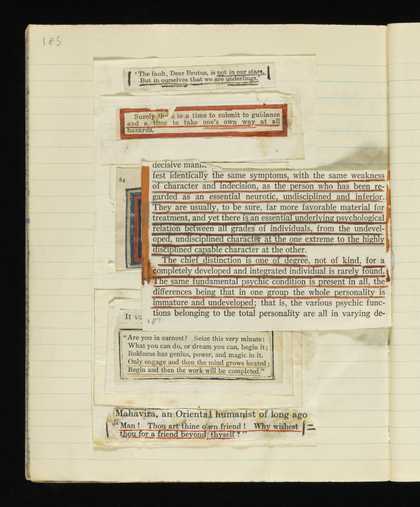 185
"The fault, Dear Brutus, is not in our stars,
But in ourselves that we are underlings."
Surely is a time to submit to guidance
and a time to take one's own way at all
hazards.
decisive mann
fest identically the same symptoms, with the same weakness
of character and indecision, as the person who has been re-
garded as an essential neurotic, undisciplined and inferior.
They are usually, to be sure, far more favorable material for
treatment, and yet there is an essential underlying psychological
relation between all grades of individuals, from the undevel-
oped, undisciplined character at the one extreme to the highly
disciplined capable character at the other.
The chief distinction is one of degree, not of kind, for a
completely developed and integrated individual is rarely found.
The same fundamental psychic condition is present in all, the
differences being that in one group the whole personality is
immature and undeveloped; that is, the various psychic func-
tions belonging to the total personality are all in varying de-
187
It
"Are you in earnest? Seize this very minute:
What you can do, or dream you can, begin it;
Boldness has genius, power, and magic in it.
Only engage and then the mind grows heated;
Begin and then the work will be completed."
Mahavira, an Oriental humanist of long ago
"Man! Thou art thine own friend! Why wishest
thou for a friend beyond thyself?"